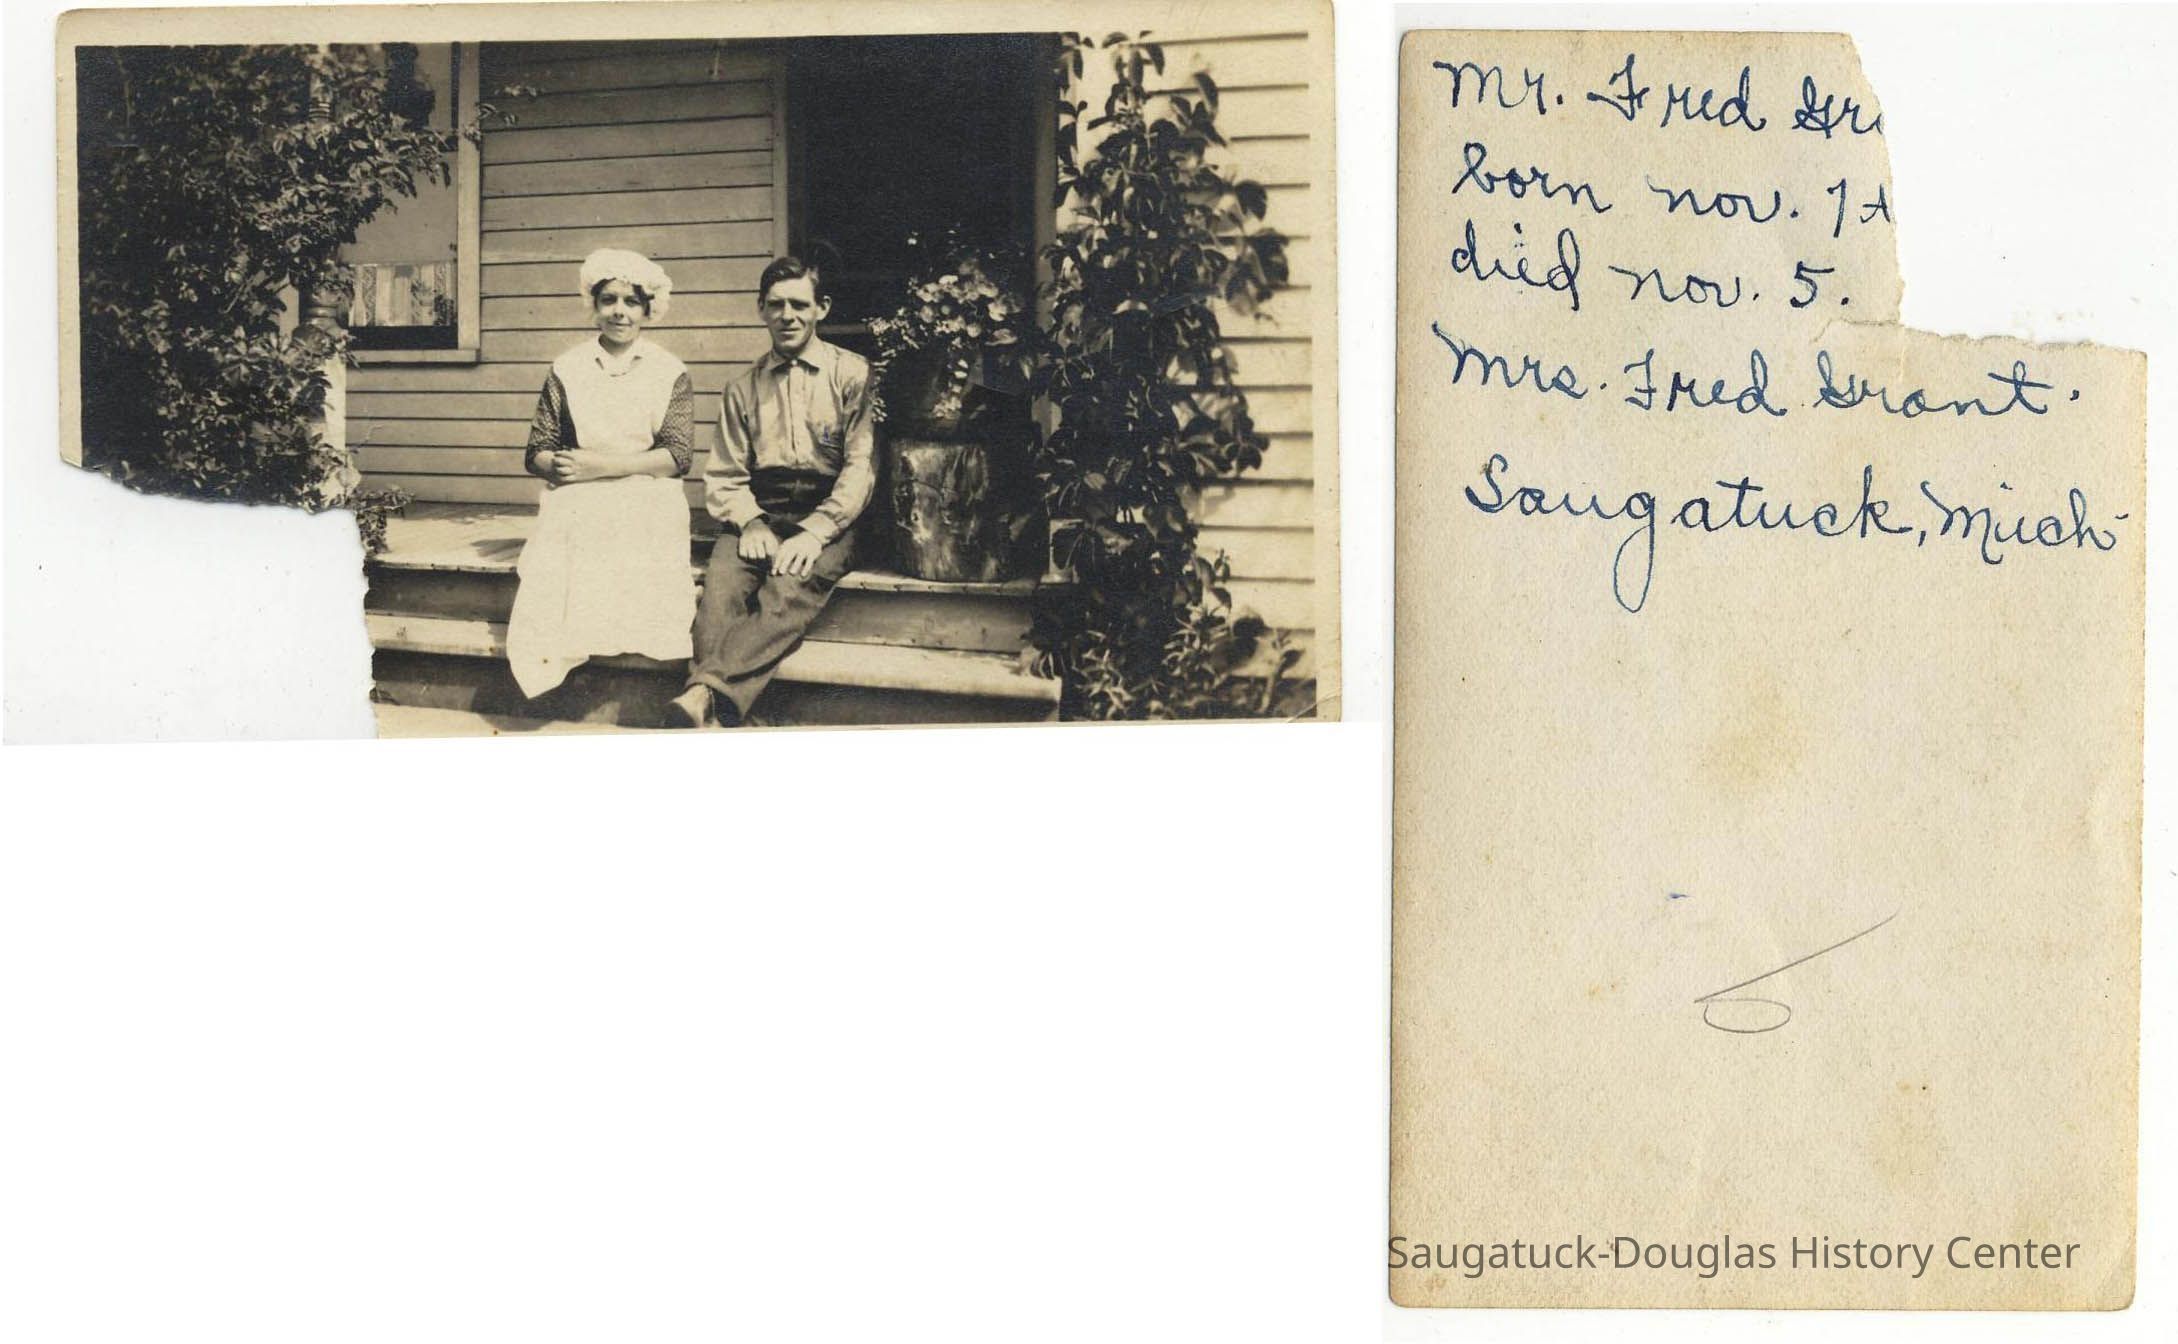 Mr. Fred Gr
born nov. 7
died nov. 5.
Mrs. Fred Grant.
Saugatuck, Mich
Saugatuck-Douglas History Center